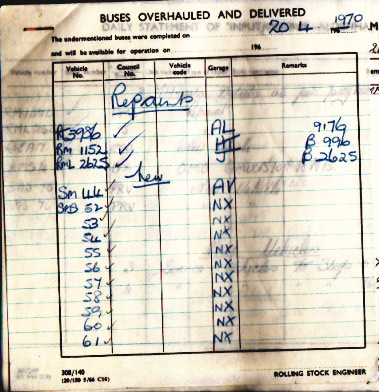 BUSES OVERHAULED AND DELIVERED
The undermentioned buses were completed on 20-4 1970
and will be available for operation on 196
Vehicle No. Council No. Vehicle code Garage Remarks
Repaints
✓ AL 9176
RM 1152 ✓ B 996
RML 2625 ✓ J B 2625
New
SM 44 ✓ AV
SMB 52 ✓ NX
53 ✓ NX
54 ✓ NX
55 ✓ NX
56 ✓ NX
57 ✓ NX
58 ✓ NX
59 ✓ NX
60 ✓ NX
61 ✓ NX
308/140
ROLLING STOCK ENGINEER